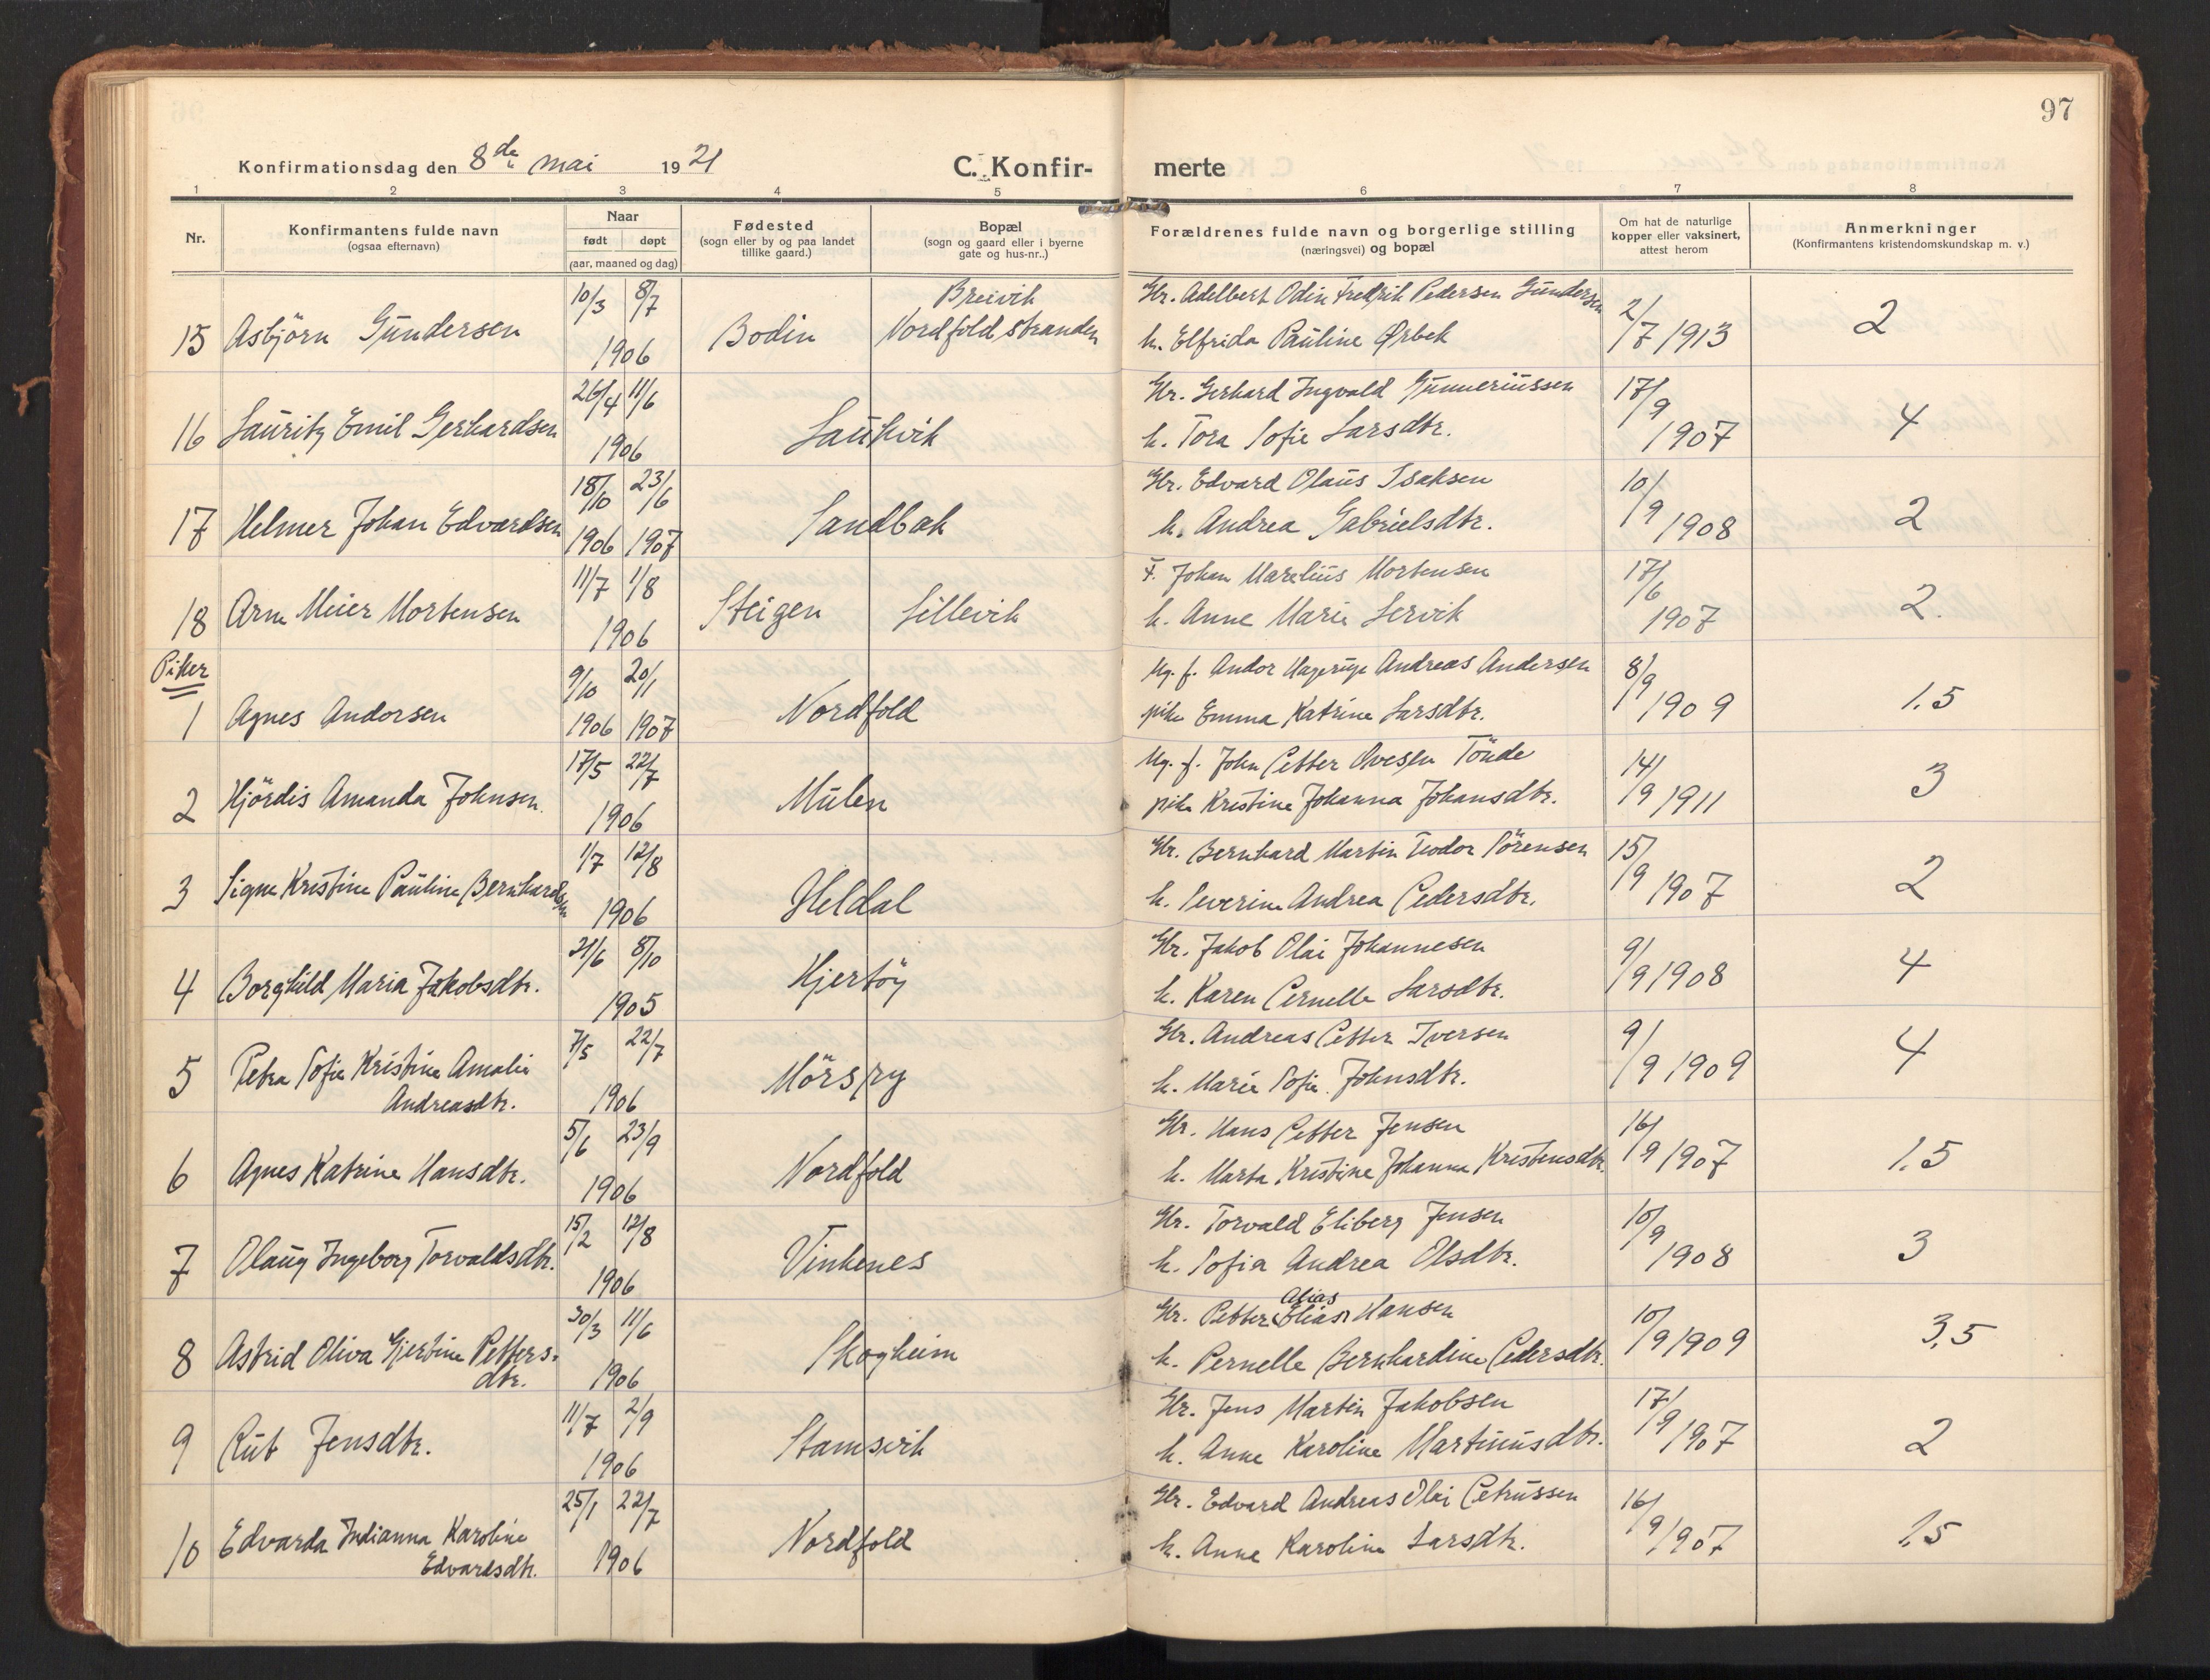 97
Konfirmationsdag den 8de mai 1921
C. Konfir- merte
1 2 3 4 5 6 7 8
Nr.
Konfirmantens fulde navn
(ogsaa efternavn)
Naar
født døpt
(aar, maaned og dag)
Fødested
(sogn eller by og paa landet
tillike gaard.)
Bopæl
(sogn og gaard eller i byerne
gate og hus-nr..)
Forældrenes fulde navn og borgerlige stilling
(næringsvei) og bopæl
Om hat de naturlige
kopper eller vaksinert,
attest herom
Anmerkninger
(Konfirmantens kristendomskundskap m. v.)
10/3 8/7 Breivik Gr. Adelbert Odin Fredrik Pedersen Gundersen 2/7 1913 2
15 Asbjörn Gundersen 1906 Bodin Nordfoldstranden h. Elfrida Pauline Ørbek
26/4 11/6 Gr. Gerhard Ingvald Gunneriussen 17/9 1907 4
16 Lauritz Emil Gerhardsen 1906 Laukvik h. Tora Sofie Larsdtr.
18/10 23/6 Gr. Edvard Olaus Isaksen 10/9 1908 2
17 Helmer Johan Edvardsen 1906 1907 Sandbak h. Andrea Gabrielsdtr.
11/7 1/8 F. Johan Marelius Mortensen 17/6 1907 2.
18 Arne Meier Mortensen 1906 Steigen Lillevik h. Anne Marie Lervik
Piker
9/10 20/1 Ug. f. Andor Hagerup Andreas Andersen 8/9 1909 1.5
1 Agnes Andorsen 1906 1907 Nordfold pike Emma Katrine Larsdtr.
17/5 22/7 Ug. f. John Petter Ovesen Tönde 14/9 1911 3
2 Hjördis Amanda Johnsen. 1906 Mulen pike Kristine Johanna Johansdtr.
1/7 12/8 Gr. Bernhard Martin Teodor Sörensen 15/9 1907 2
3 Signe Kristine Pauline Bernhardsen 1906 Heldal h. Severine Andrea Pedersdtr.
21/6 8/10 Gr. Jakob Olai Johannesen 9/9 1908 4
4 Borghild Maria Jakobsdtr. 1905 Hjertöy h. Karen Pernelle Larsdtr.
7/5 22/7 Gr. Andreas Petter Iversen 9/9 1909 4
5 Petra Sofie Kristine Amalie Mörsry h. Marie Sofie Johnsdtr.
Andreasdtr. 1906
5/6 23/9 Gr. Hans Petter Jensen 16/9 1907 1.5
6 Agnes Katrine Hansdtr. 1906 Nordfold h. Marta Kristine Johanna Kristensdtr.
15/2 12/8 Gr. Torvald Eliberg Jensen 10/9 1908 3
7 Olaug Ingeborg Torvaldsdtr. 1906 Vinkenes h. Sofia Andrea Olsdtr.
Alias
30/3 11/6 Gr. Petter (Elias) Hansen 10/9 1909 3,5
8 Astrid Oliva Gjertine Petters- Skogheim h. Pernelle Bernhardine Pedersdtr.
dtr. 1906
11/7 2/9 Gr. Jens Martin Jakobsen 17/9 1907 2
9 Rut Jensdtr. 1906 Stamsvik h. Anne Karoline Martinusdtr.
25/1 22/7 Gr. Edvard Andreas Olai Petrussen 16/9 1907 1.5
10 Edvarda Indianna Karoline Nordfold h. Anna Karoline Larsdtr.
Edvardsdtr. 1906